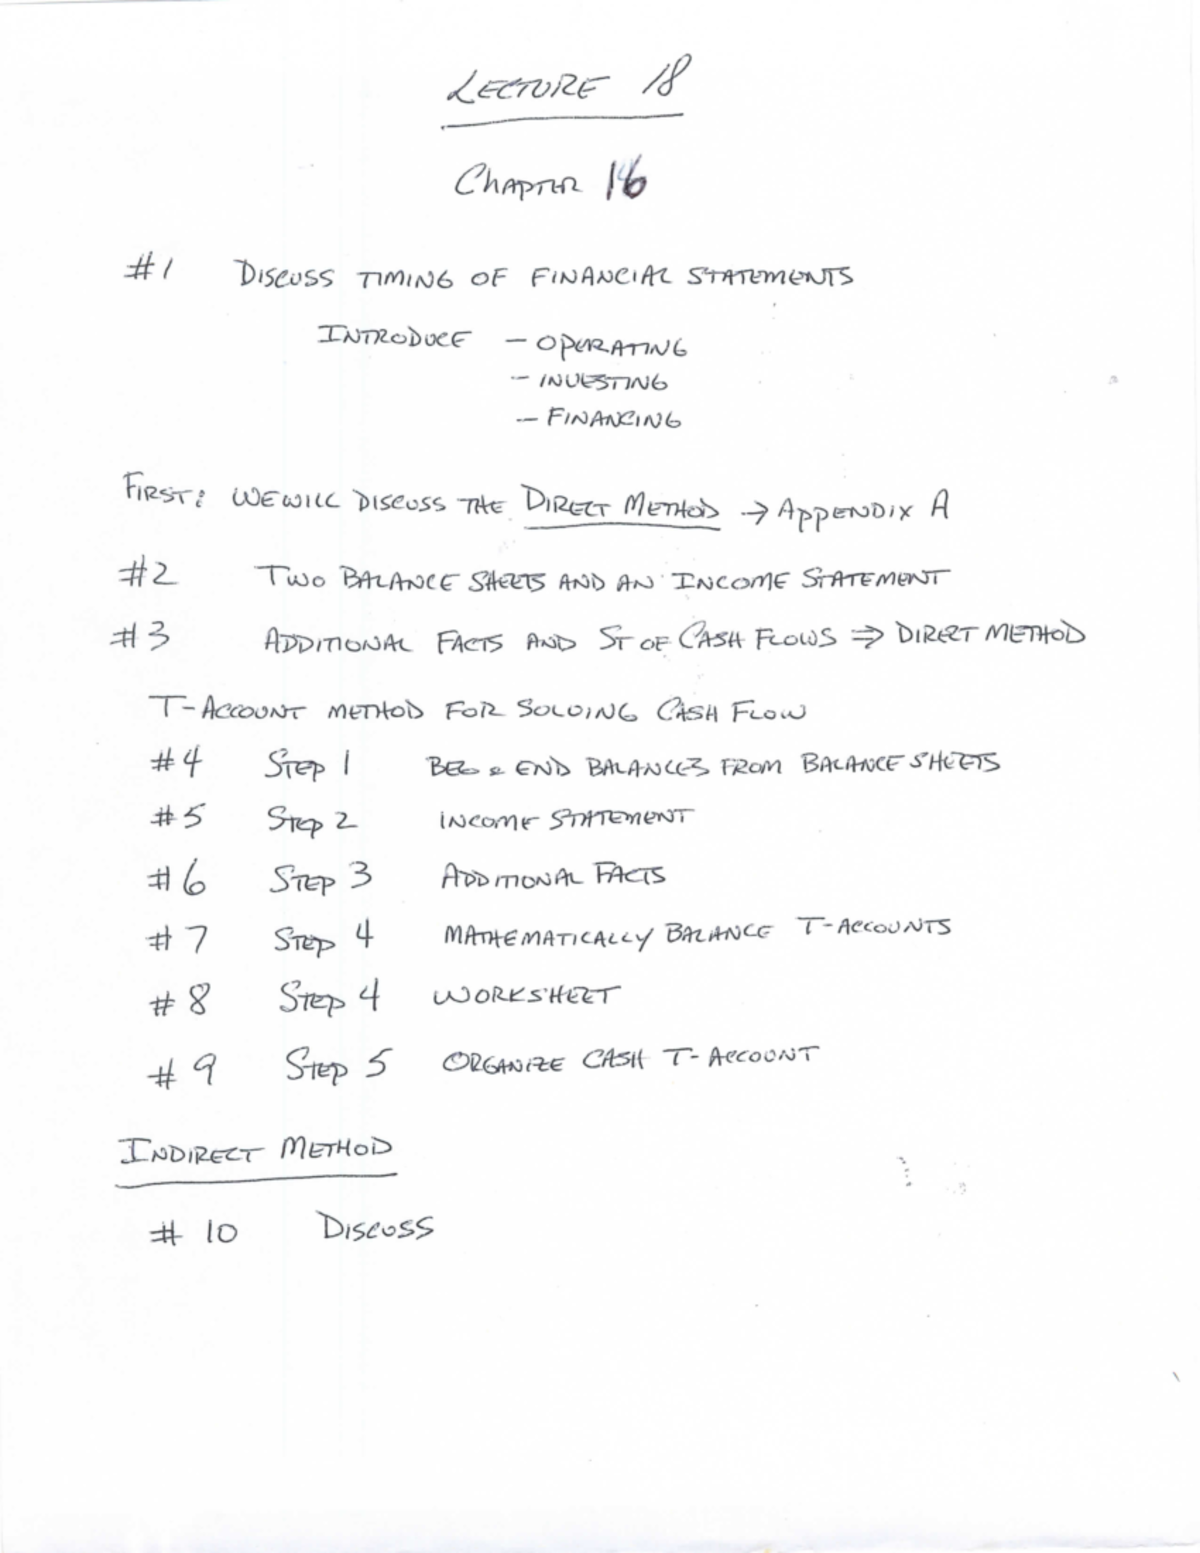 LECTURE 18
CHAPTER 16
#1 DISCUSS TIMING OF FINANCIAL STATEMENTS
INTRODUCE - OPERATING
- INVESTING
- FINANCING
FIRST: WE WILL DISCUSS THE DIRECT METHOD → APPENDIX A
#2 TWO BALANCE SHEETS AND AN INCOME STATEMENT
#3 ADDITIONAL FACTS AND ST OF CASH FLOWS ⇒ DIRECT METHOD
T-ACCOUNT METHOD FOR SOLVING CASH FLOW
#4 STEP 1 BEG & END BALANCES FROM BALANCE SHEETS
#5 STEP 2 INCOME STATEMENT
#6 STEP 3 ADDITIONAL FACTS
#7 STEP 4 MATHEMATICALLY BALANCE T-ACCOUNTS
#8 STEP 4 WORKSHEET
#9 STEP 5 ORGANIZE CASH T-ACCOUNT
INDIRECT METHOD
#10 DISCUSS